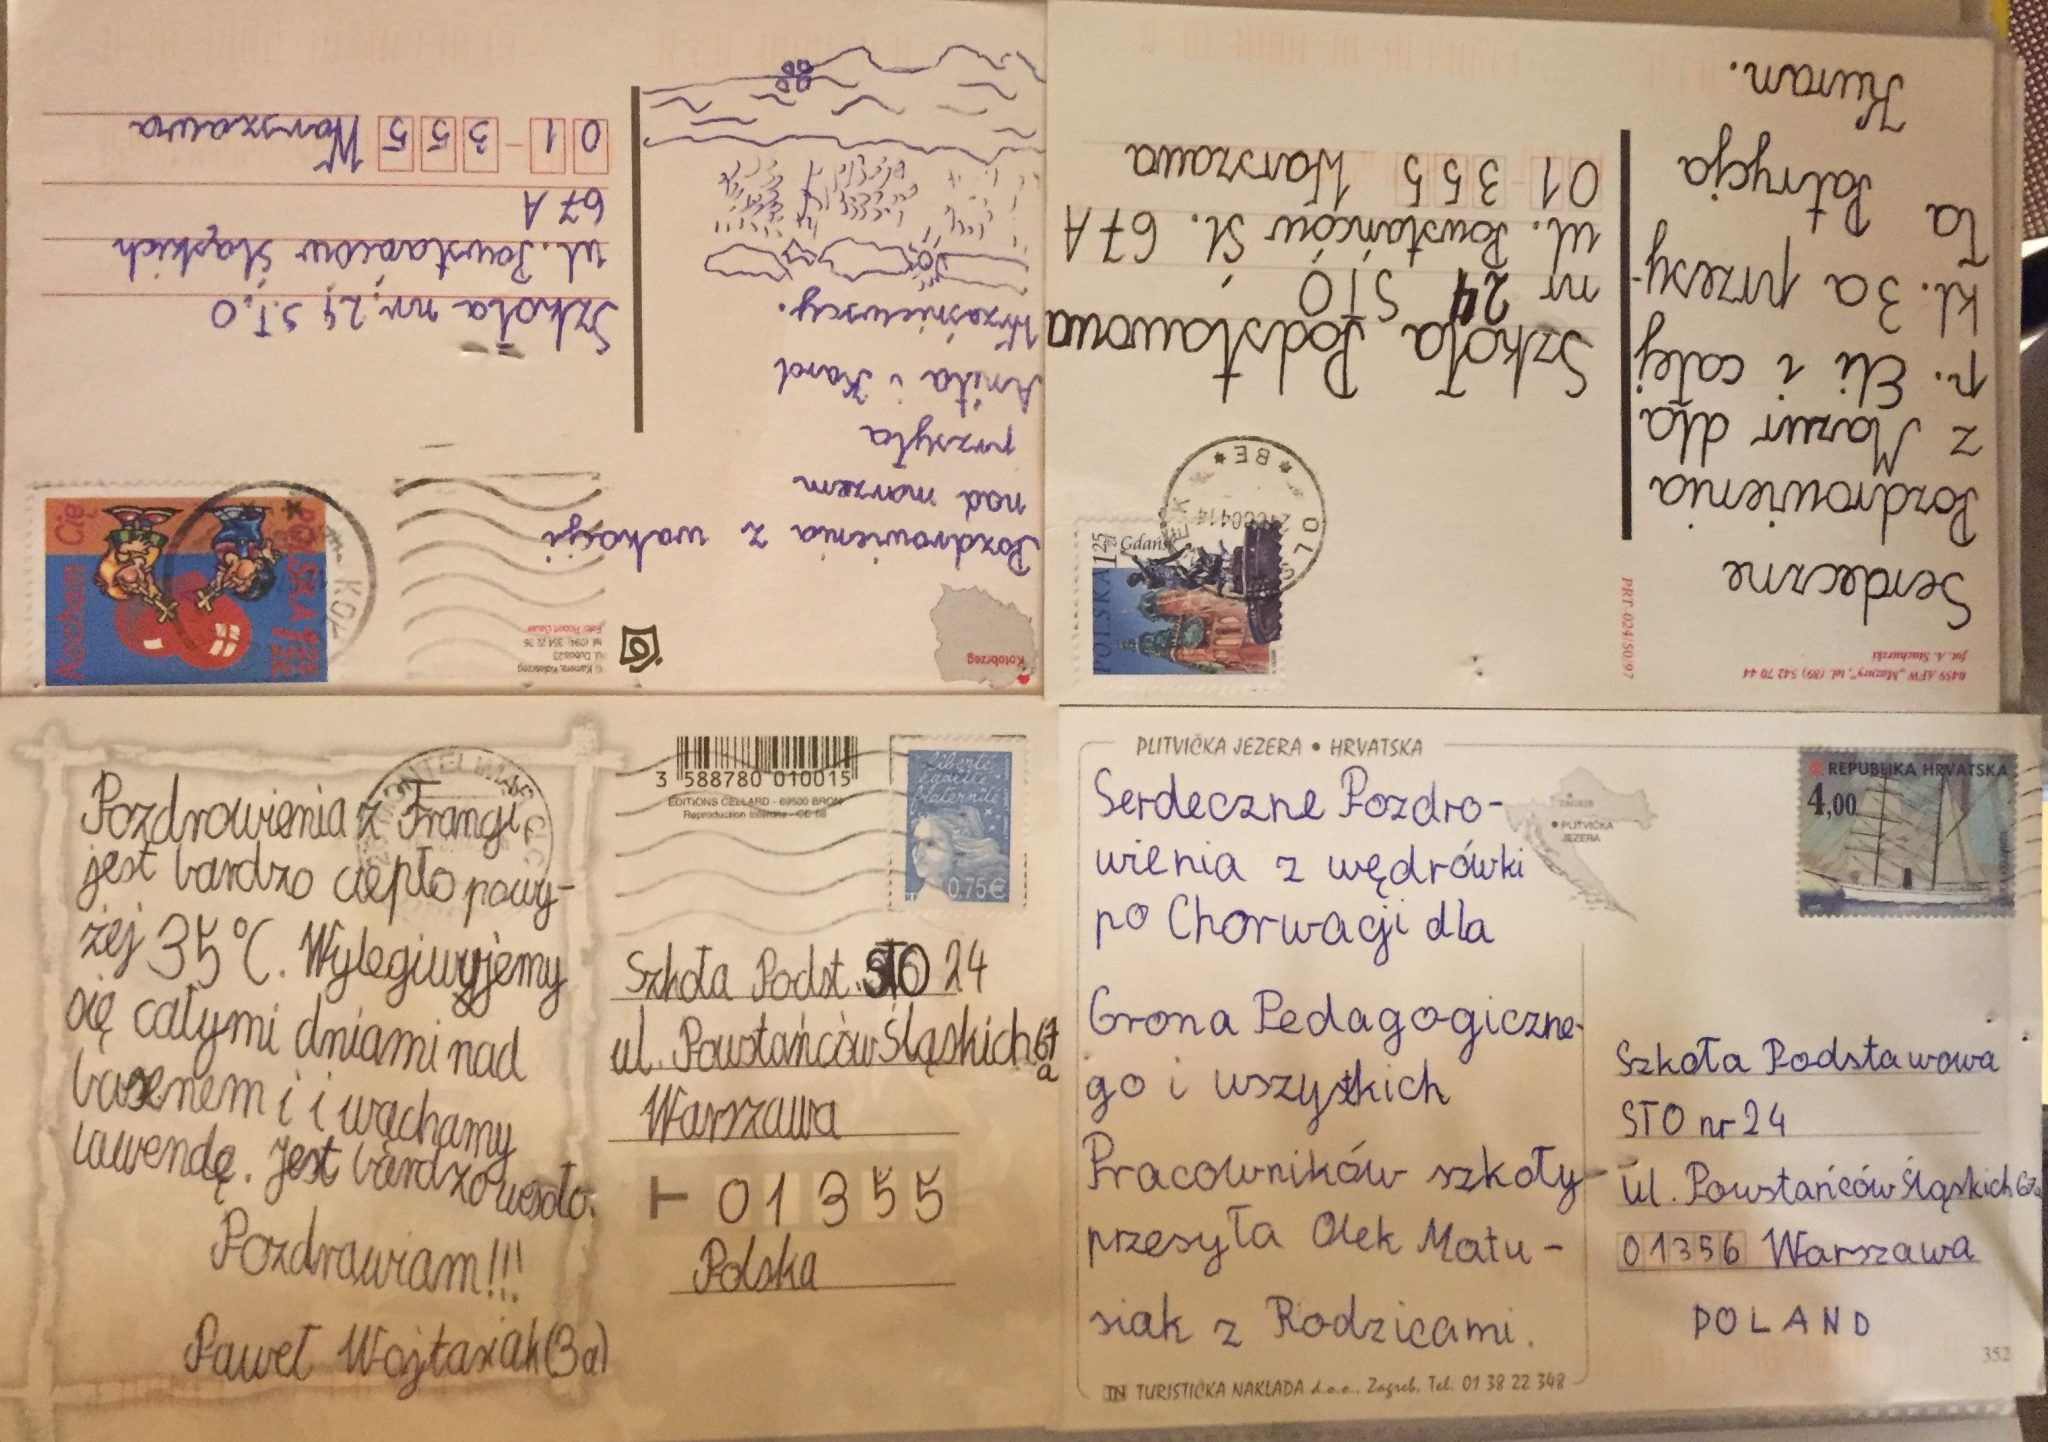 Kołobrzeg
Pozdrowienia z wakacji
nad marzem
przsyła
Anita i Karol
Wrześniewscy.
Foto: Robert Gauer
Kocham Cię
POLSKA
Szkoła nr. 24 S.T.O
ul. Powstańców Śląskich
67 A
01-355 Warszawa
0459 AFW „Mazury”, tel. (89) 542 70 44
fot. A. Stachurski
PRT-024/50/97
Serdeczne
Pozdrowienia
z Mazur dla
p. Eli i całej
kl. 3a przesy-
ła Patrycja
Kuran.
POLSKA 1,25 zł
Gdańsk
Szkoła Podstawowa
nr 24 STO
ul. Powstańców Śl. 67A
01-355 Warszawa
Pozdrowienia z Francji,
jest bardzo ciepło powy-
żej 35°C. Wylegiwujemy
się całymi dniami nad
basenem i i wąchamy
lawendę. Jest bardzo wesoło.
Pozdrawiam!!!
Paweł Wojtasiak (3a)
3 588780 010015
EDITIONS CELLARD - 69500 BRON
Liberté
égalité
fraternité
0,75€
Szkoła Podst. STO 24
ul. Powstańców Śląskich 67
a
Warszawa
01355
Polska
PLITVIČKA JEZERA • HRVATSKA
Serdeczne Pozdro-
wienia z wędrówki
po Chorwacji dla
Grona Pedagogiczne-
go i wszystkich
Pracowników szkoły
przesyła Olek Matu-
siak z Rodzicami.
ZAGREB
PLITVIČKA
JEZERA
TURISTIČKA NAKLADA d.o.o. Zagreb. Tel. 01 38 22 348
REPUBLIKA HRVATSKA
4,00
Szkoła Podstawowa
STO nr 24
ul. Powstańców Śląskich 67a
01356 Warszawa
POLAND
352